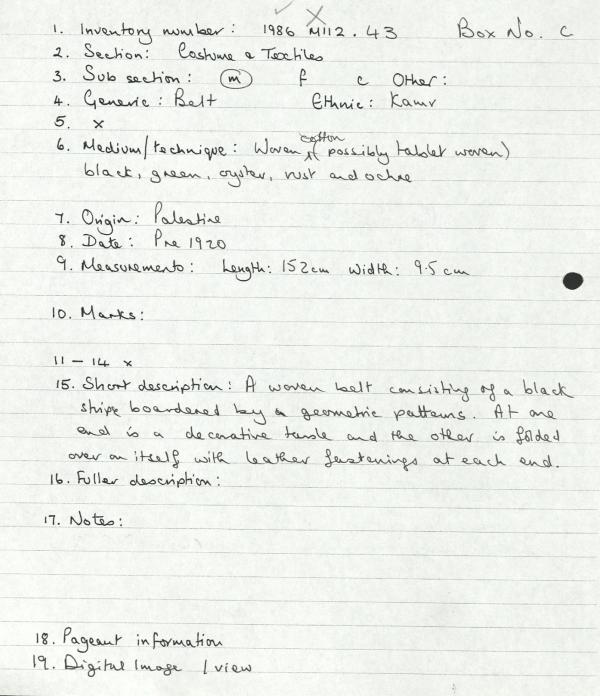 1. Inventory number: 1986 M112.43 Box No. C
2. Section: Costume & Textiles
3. Sub section: m f c Other:
4. Generic: Belt Ethnic: Kamr
5. x
6. Medium/technique: Woven cotton (possibly tablet woven)
black, green, oyster, rust and ochre
7. Origin: Palestine
8. Date: Pre 1920
9. Measurements: Length: 152cm Width: 9.5cm
10. Marks:
11 – 14 x
15. Short description: A woven belt consisting of a black
stripe boardered by a geometric patterns. At one
end is a decorative tassle and the other is folded
over on itself with leather fastenings at each end.
16. Fuller description:
17. Notes:
18. Pageant information
19. Digital Image 1 view